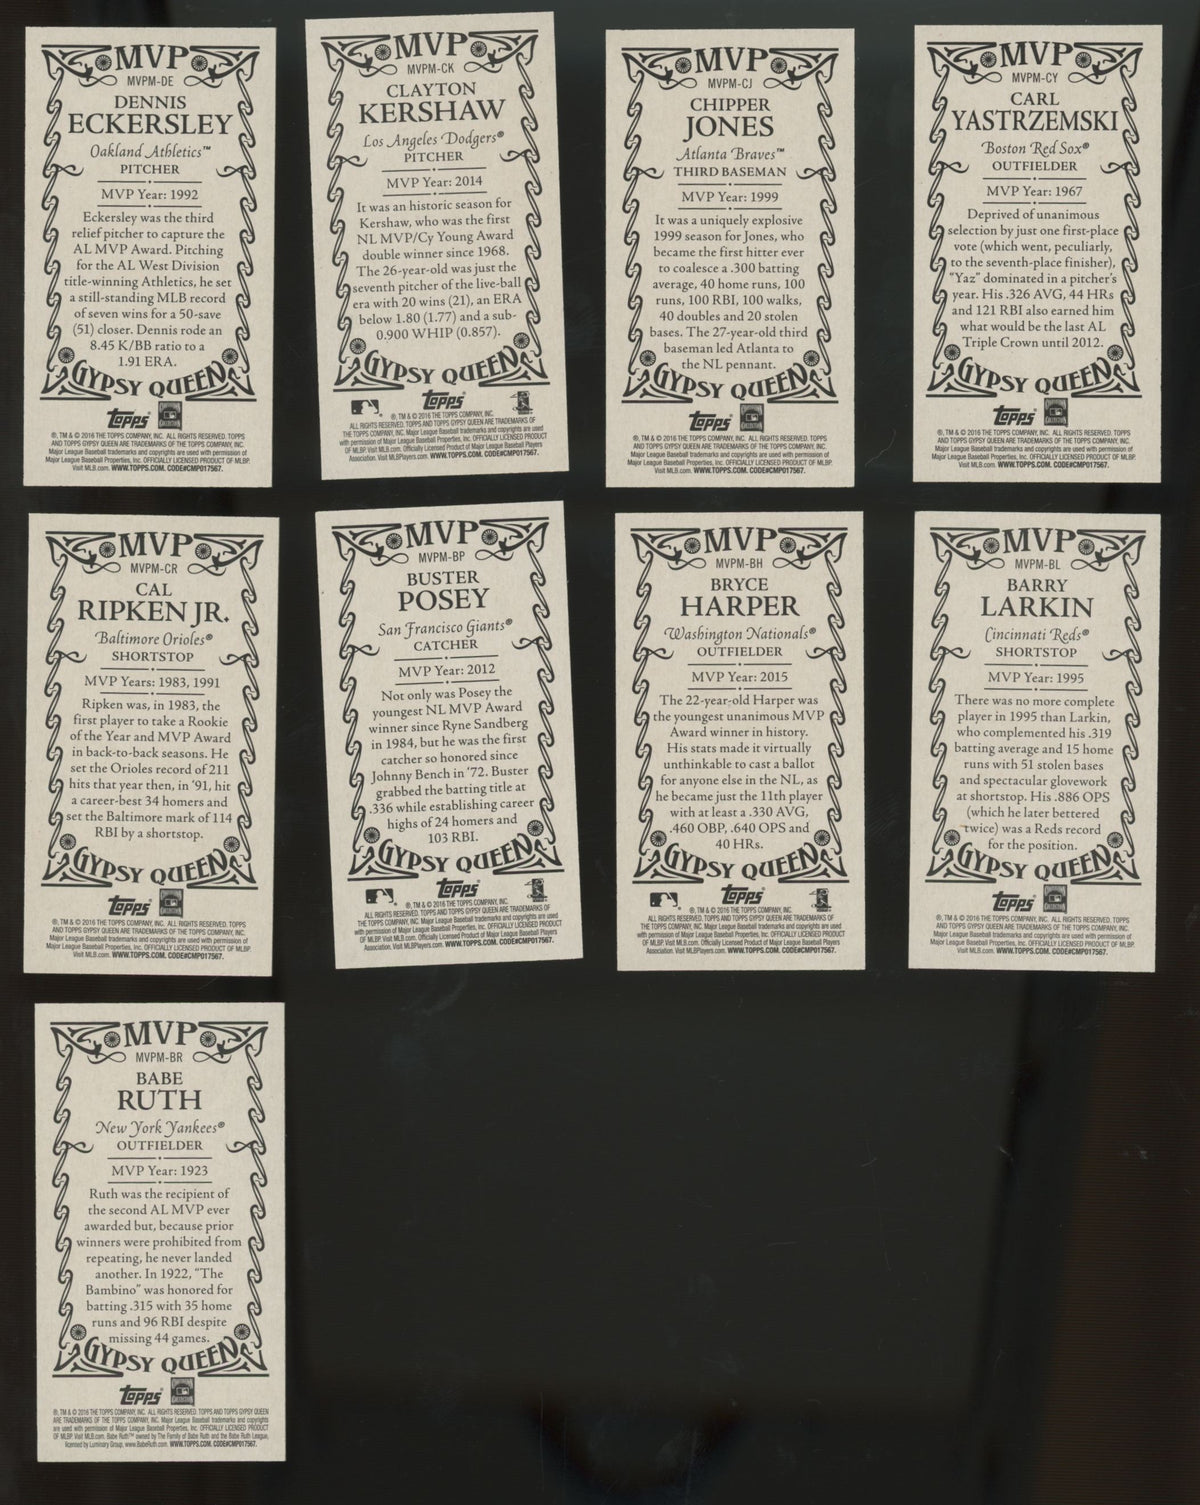 MVP
MVPM-DE
DENNIS
ECKERSLEY
Oakland Athletics™
PITCHER
MVP Year: 1992
Eckersley was the third
relief pitcher to capture the
AL MVP Award. Pitching
for the AL West Division
title-winning Athletics, he set
a still-standing MLB record
of seven wins for a 50-save
(51) closer. Dennis rode an
8.45 K/BB ratio to a
1.91 ERA.
GYPSY QUEEN
Topps
®, TM & © 2016 THE TOPPS COMPANY, INC. ALL RIGHTS RESERVED. TOPPS
AND TOPPS GYPSY QUEEN ARE TRADEMARKS OF THE TOPPS COMPANY, INC.
Major League Baseball trademarks and copyrights are used with permission of
Major League Baseball Properties, Inc. OFFICIALLY LICENSED PRODUCT OF MLBP.
Visit MLB.com. WWW.TOPPS.COM. CODE#CMP017567.
MVP
MVPM-CK
CLAYTON
KERSHAW
Los Angeles Dodgers®
PITCHER
MVP Year: 2014
It was an historic season for
Kershaw, who was the first
NL MVP/Cy Young Award
double winner since 1968.
The 26-year-old was just the
seventh pitcher of the live-ball
era with 20 wins (21), an ERA
below 1.80 (1.77) and a sub-
0.900 WHIP (0.857).
GYPSY QUEEN
Topps
®, TM & © 2016 THE TOPPS COMPANY, INC.
ALL RIGHTS RESERVED. TOPPS AND TOPPS GYPSY QUEEN ARE TRADEMARKS OF
THE TOPPS COMPANY, INC. Major League Baseball trademarks and copyrights are used
with permission of Major League Baseball Properties, Inc. OFFICIALLY LICENSED PRODUCT
OF MLBP. Visit MLB.com. Officially Licensed Product of Major League Baseball Players
Association. Visit MLBPlayers.com. WWW.TOPPS.COM. CODE#CMP017567.
MVP
MVPM-CJ
CHIPPER
JONES
Atlanta Braves™
THIRD BASEMAN
MVP Year: 1999
It was a uniquely explosive
1999 season for Jones, who
became the first hitter ever
to coalesce a .300 batting
average, 40 home runs, 100
runs, 100 RBI, 100 walks,
40 doubles and 20 stolen
bases. The 27-year-old third
baseman led Atlanta to
the NL pennant.
GYPSY QUEEN
Topps
®, TM & © 2016 THE TOPPS COMPANY, INC. ALL RIGHTS RESERVED. TOPPS
AND TOPPS GYPSY QUEEN ARE TRADEMARKS OF THE TOPPS COMPANY, INC.
Major League Baseball trademarks and copyrights are used with permission of
Major League Baseball Properties, Inc. OFFICIALLY LICENSED PRODUCT OF MLBP.
Visit MLB.com. WWW.TOPPS.COM. CODE#CMP017567.
MVP
MVPM-CY
CARL
YASTRZEMSKI
Boston Red Sox®
OUTFIELDER
MVP Year: 1967
Deprived of unanimous
selection by just one first-place
vote (which went, peculiarly,
to the seventh-place finisher),
"Yaz" dominated in a pitcher's
year. His .326 AVG, 44 HRs
and 121 RBI also earned him
what would be the last AL
Triple Crown until 2012.
GYPSY QUEEN
Topps
®, TM & © 2016 THE TOPPS COMPANY, INC. ALL RIGHTS RESERVED. TOPPS
AND TOPPS GYPSY QUEEN ARE TRADEMARKS OF THE TOPPS COMPANY, INC.
Major League Baseball trademarks and copyrights are used with permission of
Major League Baseball Properties, Inc. OFFICIALLY LICENSED PRODUCT OF MLBP.
Visit MLB.com. WWW.TOPPS.COM. CODE#CMP017567.
MVP
MVPM-CR
CAL
RIPKEN JR.
Baltimore Orioles®
SHORTSTOP
MVP Years: 1983, 1991
Ripken was, in 1983, the
first player to take a Rookie
of the Year and MVP Award
in back-to-back seasons. He
set the Orioles record of 211
hits that year then, in '91, hit
a career-best 34 homers and
set the Baltimore mark of 114
RBI by a shortstop.
GYPSY QUEEN
Topps
®, TM & © 2016 THE TOPPS COMPANY, INC. ALL RIGHTS RESERVED. TOPPS
AND TOPPS GYPSY QUEEN ARE TRADEMARKS OF THE TOPPS COMPANY, INC.
Major League Baseball trademarks and copyrights are used with permission of
Major League Baseball Properties, Inc. OFFICIALLY LICENSED PRODUCT OF MLBP.
Visit MLB.com. WWW.TOPPS.COM. CODE#CMP017567.
MVP
MVPM-BP
BUSTER
POSEY
San Francisco Giants®
CATCHER
MVP Year: 2012
Not only was Posey the
youngest NL MVP Award
winner since Ryne Sandberg
in 1984, but he was the first
catcher so honored since
Johnny Bench in '72. Buster
grabbed the batting title at
.336 while establishing career
highs of 24 homers and
103 RBI.
GYPSY QUEEN
Topps
®, TM & © 2016 THE TOPPS COMPANY, INC.
ALL RIGHTS RESERVED. TOPPS AND TOPPS GYPSY QUEEN ARE TRADEMARKS OF
THE TOPPS COMPANY, INC. Major League Baseball trademarks and copyrights are used
with permission of Major League Baseball Properties, Inc. OFFICIALLY LICENSED PRODUCT
OF MLBP. Visit MLB.com. Officially Licensed Product of Major League Baseball Players
Association. Visit MLBPlayers.com. WWW.TOPPS.COM. CODE#CMP017567.
MVP
MVPM-BH
BRYCE
HARPER
Washington Nationals®
OUTFIELDER
MVP Year: 2015
The 22-year-old Harper was
the youngest unanimous MVP
Award winner in history.
His stats made it virtually
unthinkable to cast a ballot
for anyone else in the NL, as
he became just the 11th player
with at least a .330 AVG,
.460 OBP, .640 OPS and
40 HRs.
GYPSY QUEEN
Topps
®, TM & © 2016 THE TOPPS COMPANY, INC.
ALL RIGHTS RESERVED. TOPPS AND TOPPS GYPSY QUEEN ARE TRADEMARKS OF
THE TOPPS COMPANY, INC. Major League Baseball trademarks and copyrights are used
with permission of Major League Baseball Properties, Inc. OFFICIALLY LICENSED PRODUCT
OF MLBP. Visit MLB.com. Officially Licensed Product of Major League Baseball Players
Association. Visit MLBPlayers.com. WWW.TOPPS.COM. CODE#CMP017567.
MVP
MVPM-BL
BARRY
LARKIN
Cincinnati Reds®
SHORTSTOP
MVP Year: 1995
There was no more complete
player in 1995 than Larkin,
who complemented his .319
batting average and 15 home
runs with 51 stolen bases
and spectacular glovework
at shortstop. His .886 OPS
(which he later bettered
twice) was a Reds record
for the position.
GYPSY QUEEN
Topps
®, TM & © 2016 THE TOPPS COMPANY, INC. ALL RIGHTS RESERVED. TOPPS
AND TOPPS GYPSY QUEEN ARE TRADEMARKS OF THE TOPPS COMPANY, INC.
Major League Baseball trademarks and copyrights are used with permission of
Major League Baseball Properties, Inc. OFFICIALLY LICENSED PRODUCT OF MLBP.
Visit MLB.com. WWW.TOPPS.COM. CODE#CMP017567.
MVP
MVPM-BR
BABE
RUTH
New York Yankees®
OUTFIELDER
MVP Year: 1923
Ruth was the recipient of
the second AL MVP ever
awarded but, because prior
winners were prohibited from
repeating, he never landed
another. In 1922, "The
Bambino" was honored for
batting .315 with 35 home
runs and 96 RBI despite
missing 44 games.
GYPSY QUEEN
Topps
®, TM & © 2016 THE TOPPS COMPANY, INC. ALL RIGHTS RESERVED. TOPPS AND TOPPS GYPSY QUEEN
ARE TRADEMARKS OF THE TOPPS COMPANY, INC. Major League Baseball trademarks and copyrights
are used with permission of Major League Baseball Properties, Inc. OFFICIALLY LICENSED PRODUCT
OF MLBP. Visit MLB.com. Babe Ruth™ owned by The Family of Babe Ruth and the Babe Ruth League,
licensed by Luminary Group, www.BabeRuth.com. WWW.TOPPS.COM. CODE#CMP017567.